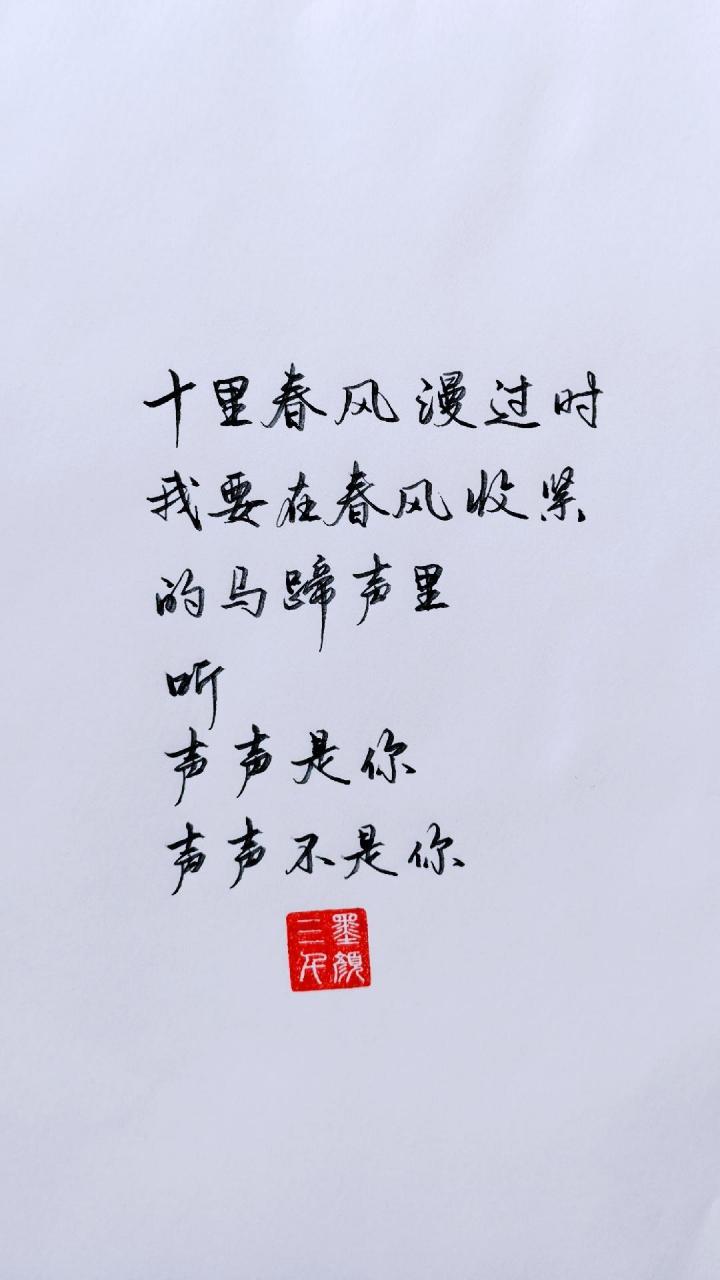 十里春风漫过时
我要在春风收紧
的马蹄声里
听
声声是你
声声不是你
墨颜